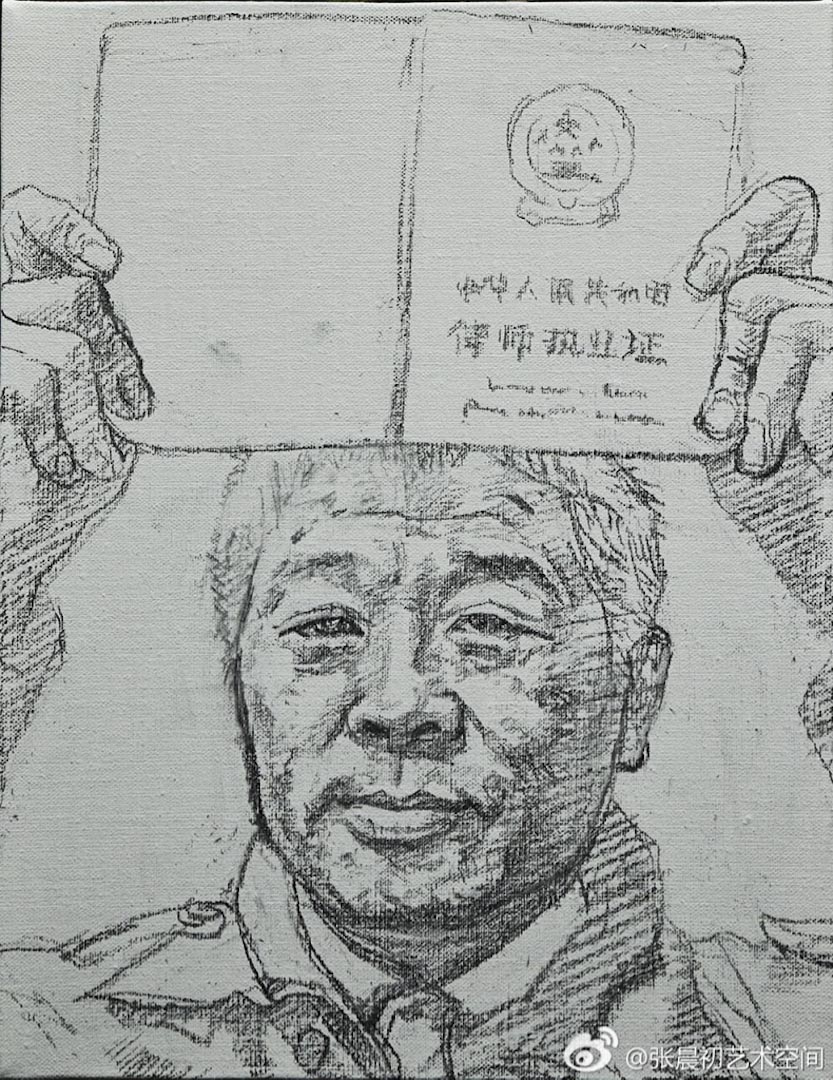 中华人民共和国
律师执业证
@张晨初艺术空间